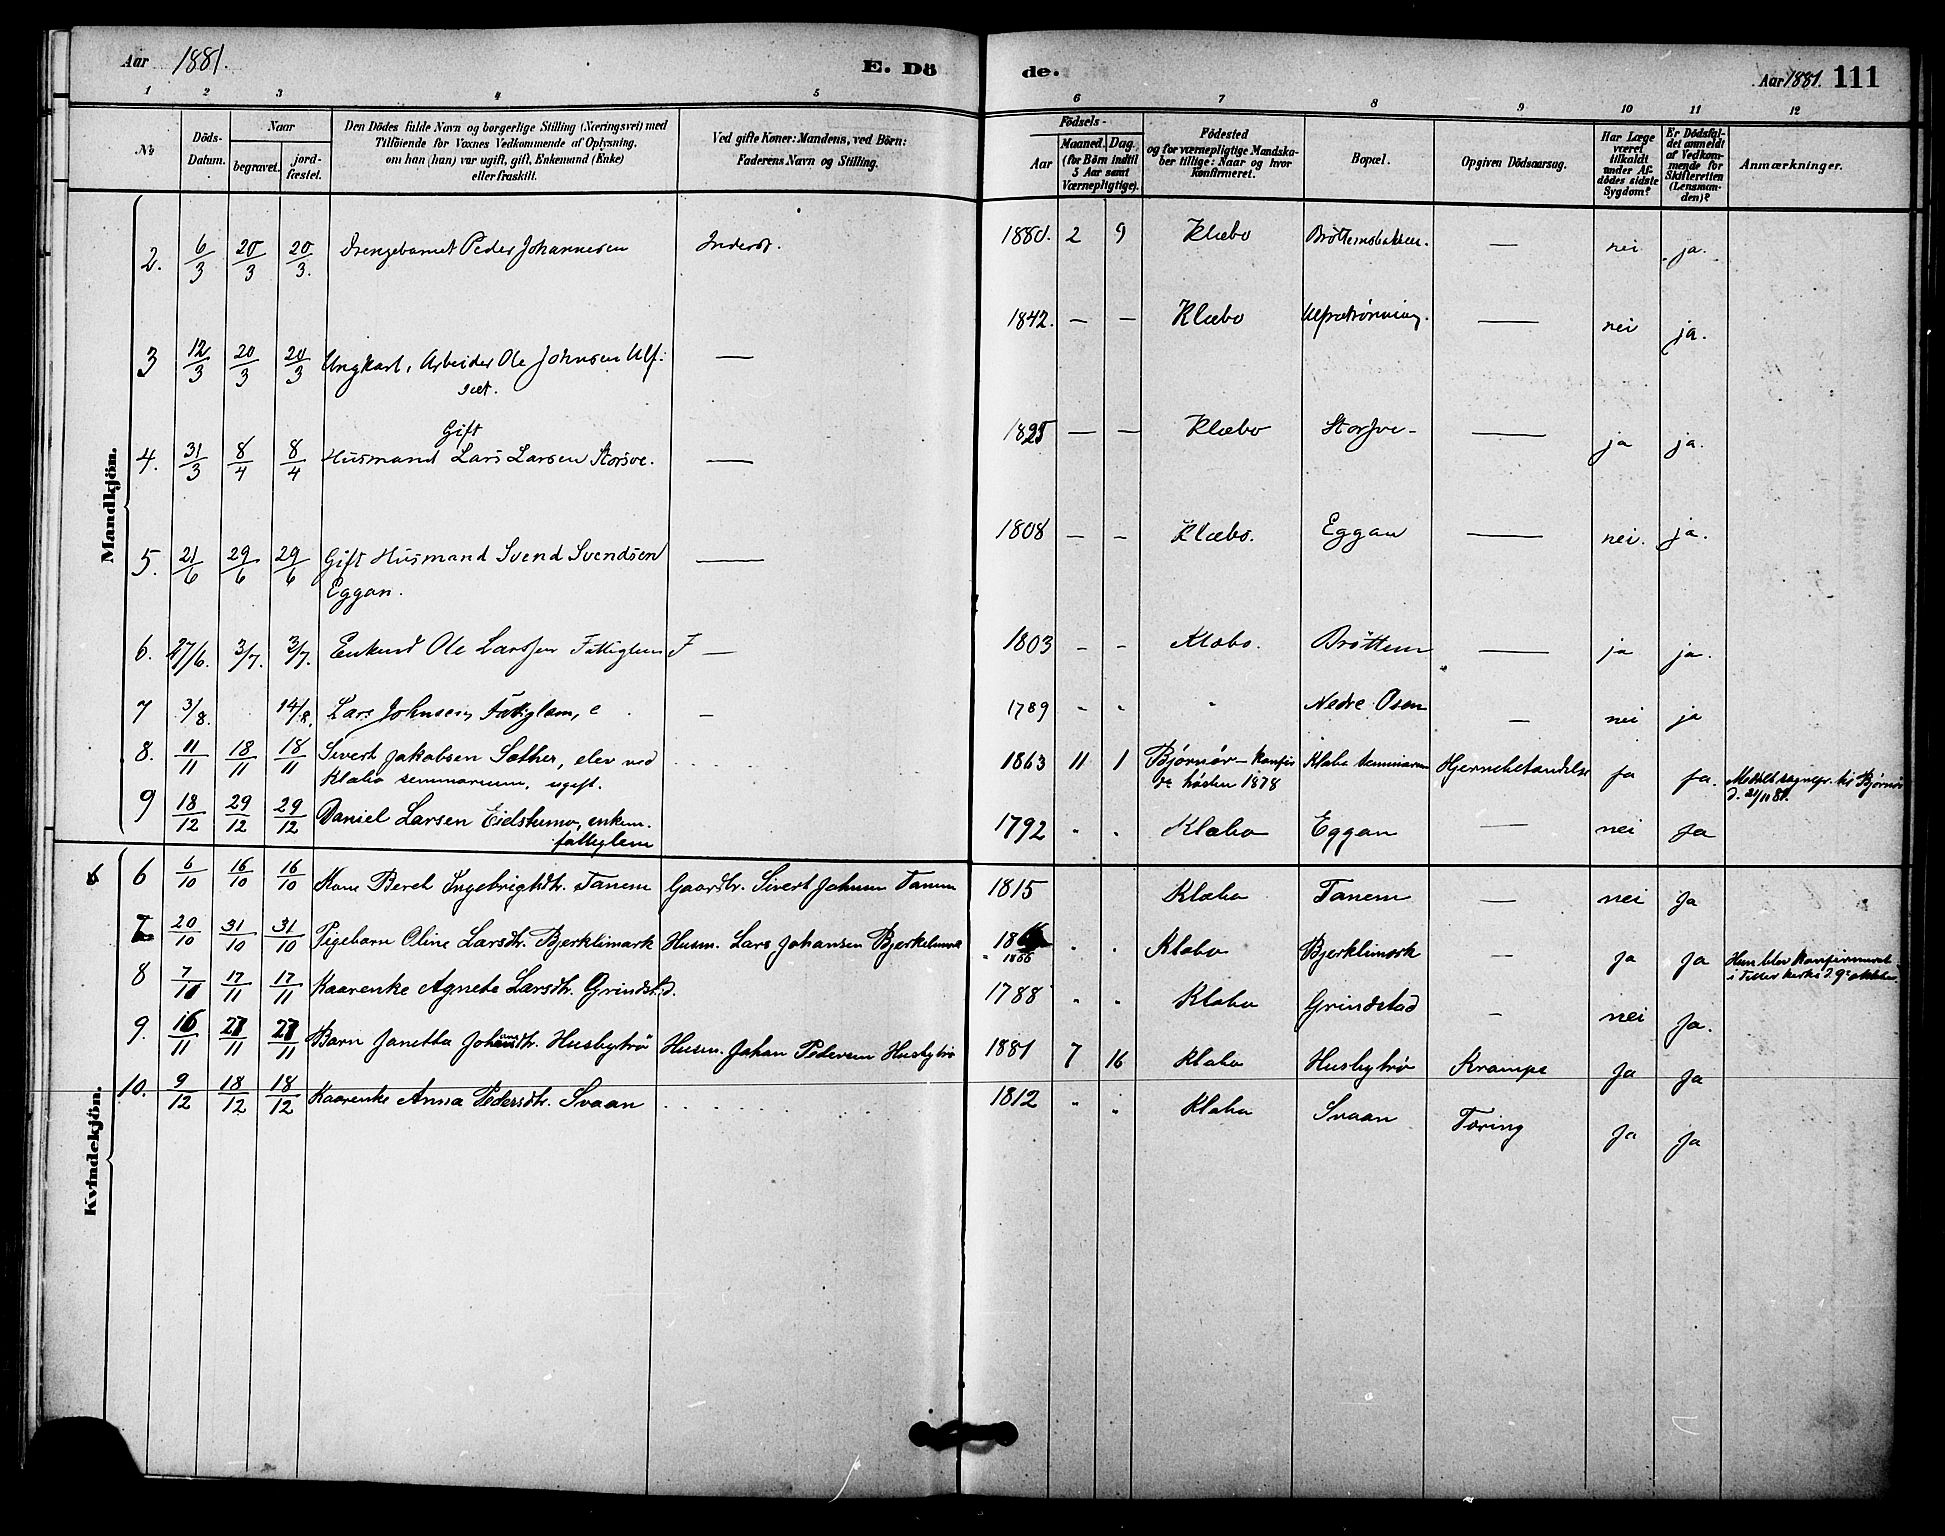 Aar 1881. E. Dö de. Aar 1881. 111
1 2 3 4 5 6 7 8 9 10 11 12
No Döds-Datum. Naar begravet. jordfæstet.
Den Dödes fulde Navn og borgerlige Stilling (Næringsvei) med
Tilföiende for Voxnes Vedkommende af Oplysning,
om han (hun) var ugift, gift, Enkemand (Enke)
eller fraskilt.
Ved gifte Koner: Mandens, ved Börn:
Faderens Navn og Stilling.
Födsels-
Aar Maaned. Dag.
(for Börn indtil
5 Aar samt
Værnepligtige).
Födested
og for værnepligtige Mandskaber
tillige: Naar og hvor
Konfirmeret.
Bopæl.
Opgiven Dödsaarsag.
Har Læge
været
tilkaldt
under Afdödes
sidste
Sygdom?
Er Dödsfaldet
anmeldt
af Vedkommende
for
Skifteretten
(Lensmanden)?
Anmærkninger.
Mandkjön.
2. 6/3 20/3 20/3. Drengebarnet Peder Johannesen Inderst. 1880. 2 9 Klæbo Bröttemsbakken. — nei ja.
3 12/3 20/3 20/3 Ungkarl, Arbeider Ole Johnsen Ulf:
sæt. — 1842. — — Klæbo — nei ja.
Gift
4. 31/3 8/4 8/4 Husmand Lars Larsen Storsve. — 1825 — — Klæbo Storsve — ja ja.
5. 21/6 29/6 29/6 Gift Husmand Svend Svendsen
Eggan. — 1808 - - Klæbo. Eggan — nei. ja.
6. 27/6. 3/7. 3/7. Enkemd Ole Larssen Fattiglem F — 1803 - - Klæbo. Bröttem — ja ja.
7 3/8. 14/8. Lars Johnsen, Fattiglem, e — 1789 " " " Nedre Osen — nei ja
8. 11/11 18/11 18/11 Sivert Jakobsen Sæther, elev ved
Klæbo seminarium, ugift. 1863 11 1 Bjørnør - Konfir
høsten 1878 Klæbo Seminarium Hjernebetændelse Ja Ja. Meddelt sognepr. til Bjørnør
d. 21/11 81.
9 18/12 29/12 29/12 Daniel Larsen Eidstumo, enkem.
fattiglem 1792 " " Klæbo Eggan — nei Ja
Kvindekjön.
6 6 6/10 16/10 16/10 Kone Beret Ingebrigtsdtr. Tanem Gaardbr. Sivert Johnsen Tanem 1815 Klæbo Tanem — nei Ja
7 20/10 31/10 31/10 Pigebarn Oline Larsdtr. Bjerklimark Husm. Lars Johansen Bjerkelimark 1866
1866 " " Klæbo Bjerklimark — Ja Ja Hun blev konfirmeret
i Tiller kirke d. 9de oktober.
8 7/11 17/11 17/11 Kaarenke Agnete Larsdtr. Grindstad. 1788 " " Klæbo Grindstad — nei Ja.
9. 16/11 27/11 27/11 Barn Janetta Johansdtr. Husbytrø Husm. Johan Pedersen Husbytrø 1881 7 16 Klæbo Husbytrø Krampe Ja Ja
10. 9/12 18/12 18/12 Kaarenke Anna Pedersdtr. Svaan 1812 " " Klæbo Svaan Tæring Ja Ja